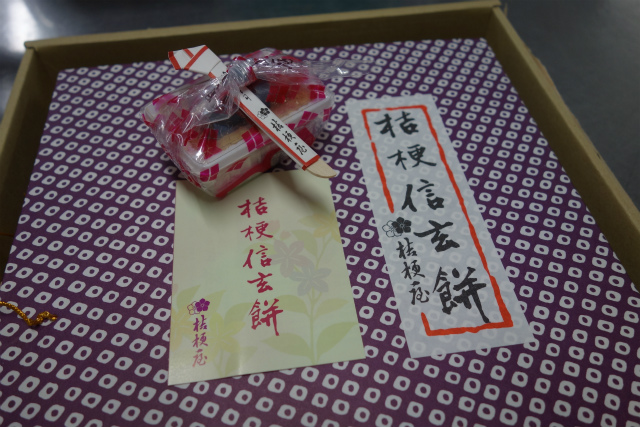 桔梗屋
桔梗信玄餅
桔梗屋
桔梗信玄餅
桔梗屋